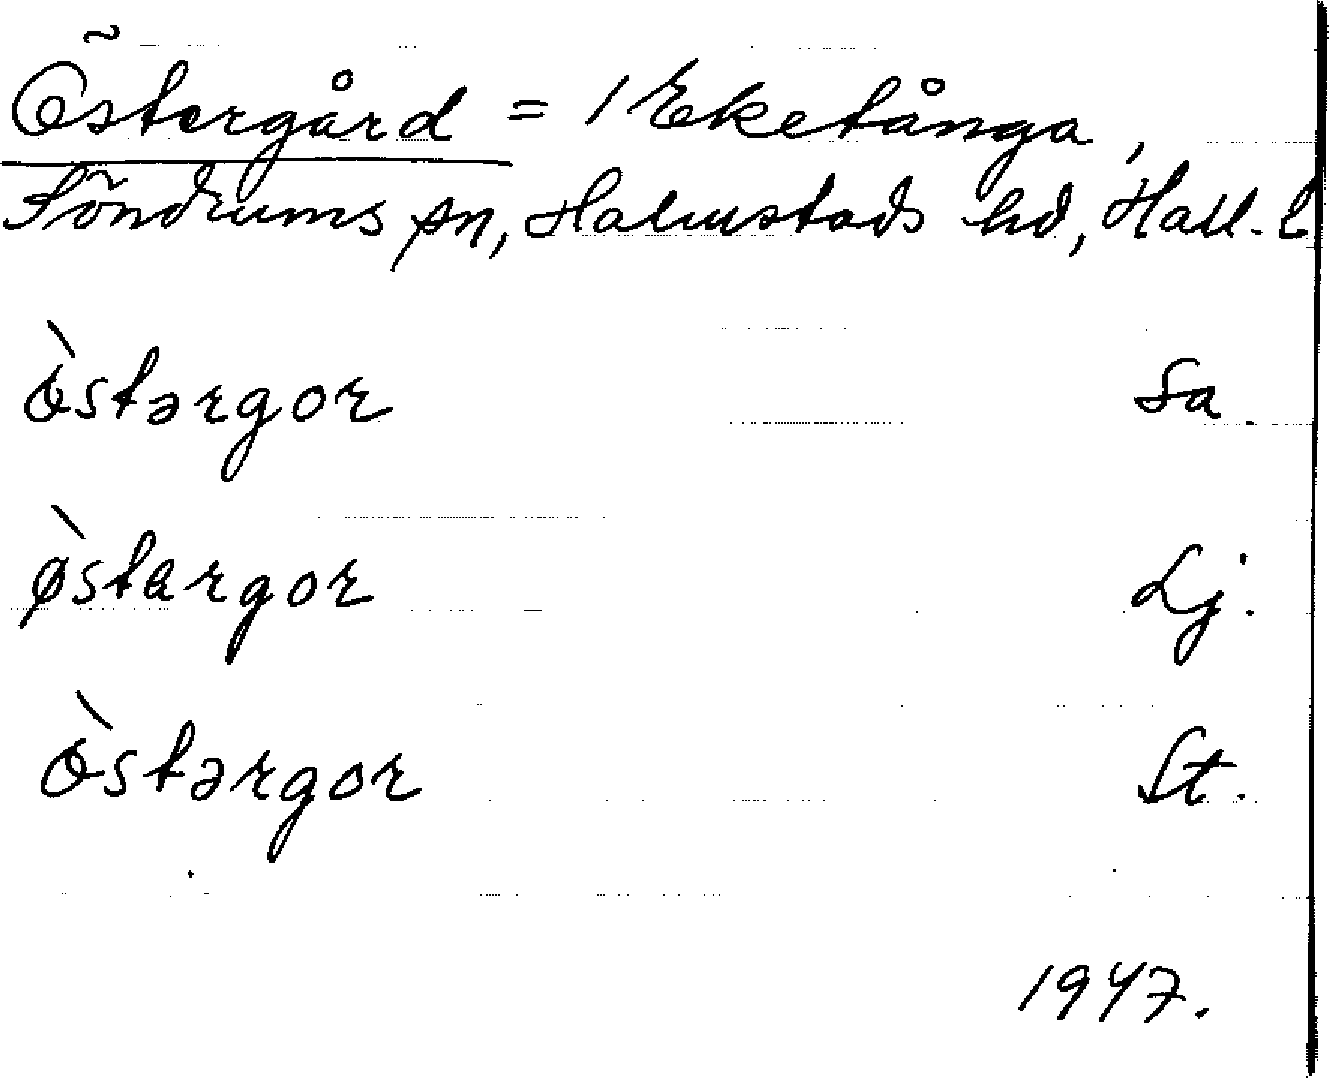 Östergård = 1 Eketånga,
Söndrums sn, Halmstads hd, Hall. l
òstərgor Sa.
østərgor Lj.
òstərgor St.
1947.